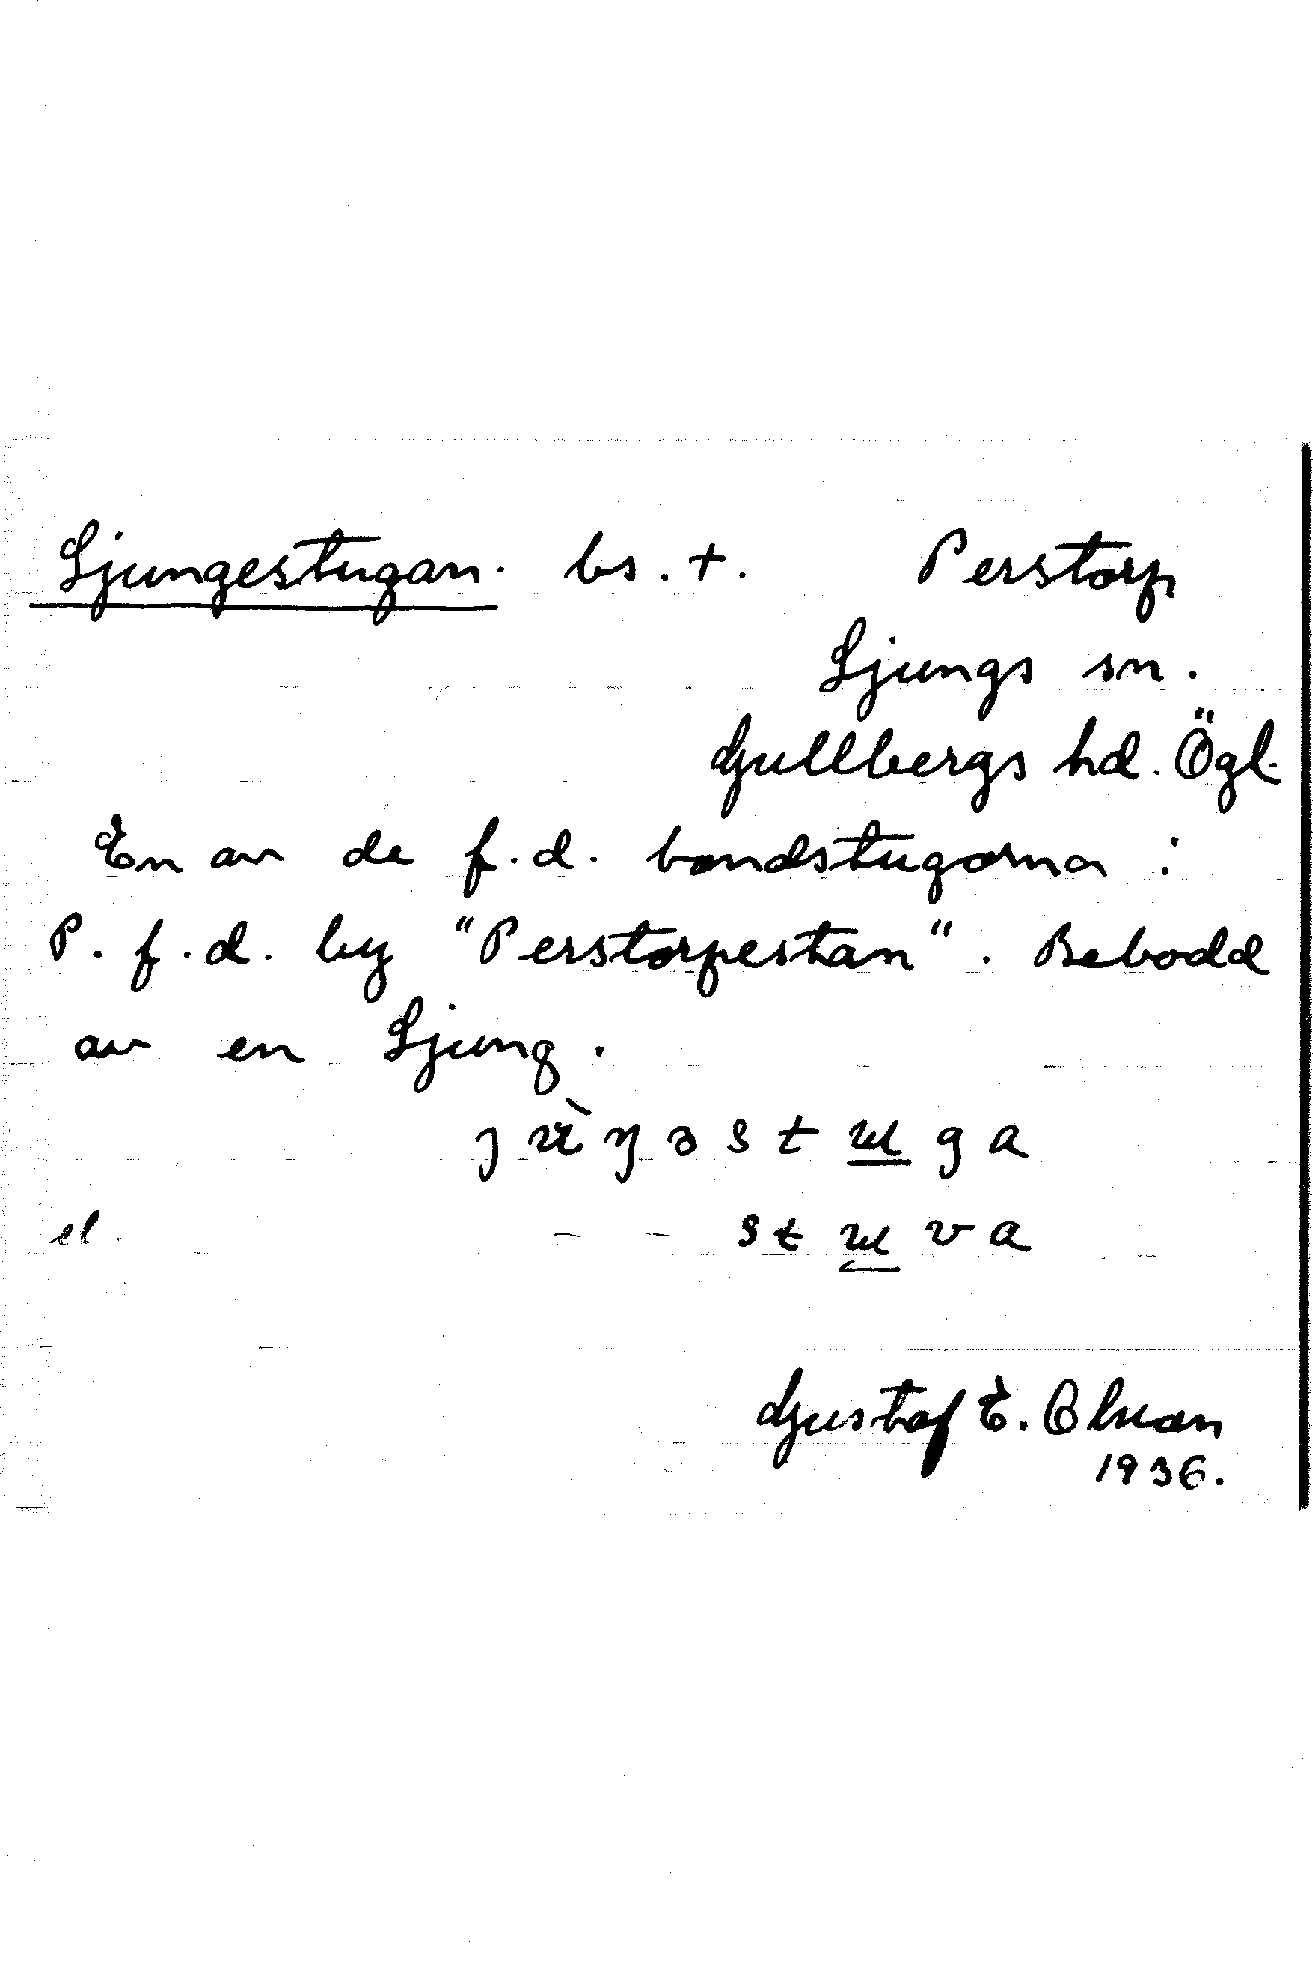 Ljungestugan. bs. +. Perstorp
Ljungs sn.
Gullbergs hd. Ögl.
En av de f.d. bondstugorna i
P. f.d. by "Perstorpestan". Bebodd
av en Ljung.
ȷ ŋ ə s t u g a
el. - - s t u v a
Gustaf E. Olsson
1936.